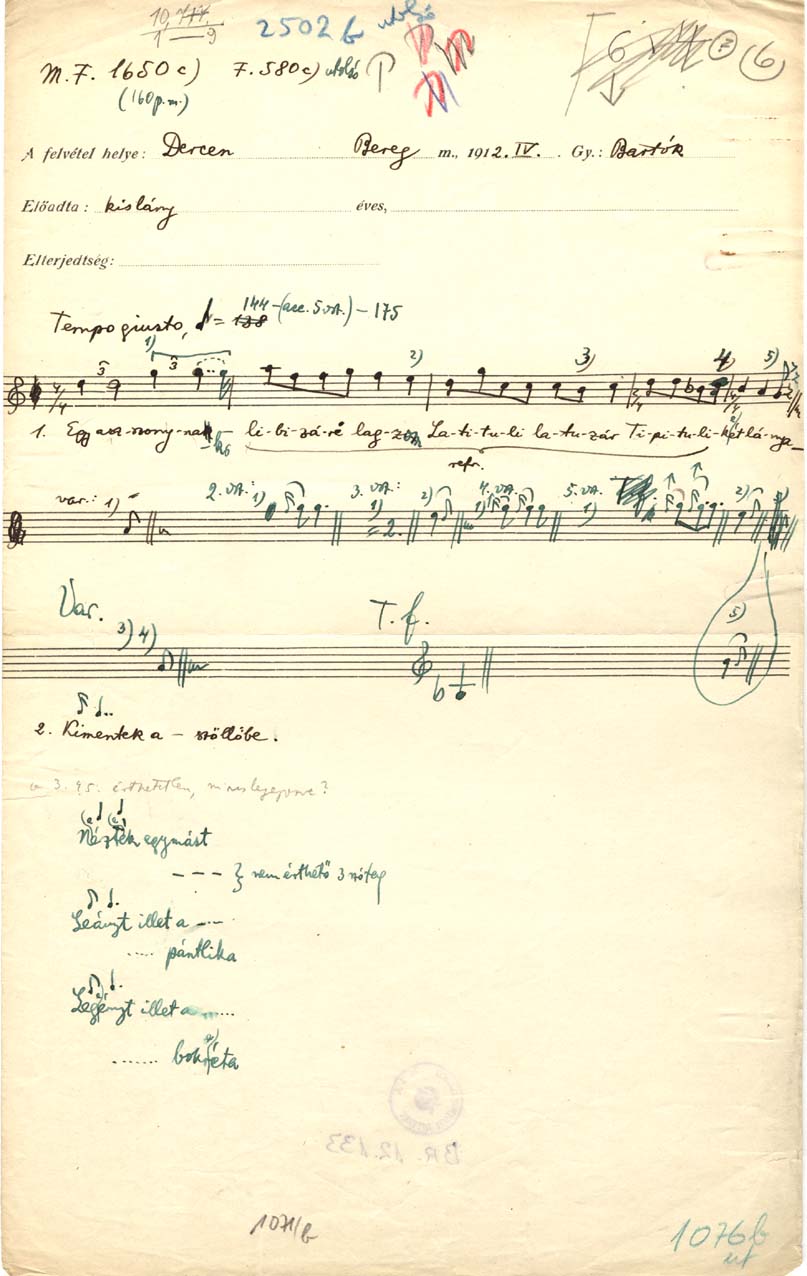 10.744.
1 — 9
2502 b utolsó
M. F. 1650 c) F. 580 c) utolsó P
(160 p.m.)
6
7
(6)
A felvétel helye: Dercen Bereg m., 1912. IV. Gy.: Bartók
Előadta: kislány éves,
Elterjedtség:
Tempo giusto, = 138 144 - (acc. 5. vsz.) - 175
1) 3 3 2) 3) 4 5)
1. Egy asz-szony-nak li-bi-zá-ré lag-zom La-ti-tu-li la-tu-zár Ti-pi-tu-li-két lá-nya
refr.
var.: 1) 2. vsz.: 1) 3. vsz.: 1) = 2. 2) 4. vsz. 1) 5. vsz. 1) 2)
Var. 3) 4) T. f. 5)
2. Kimentek a – szöllőbe.
Nézték egymást
– – – } nem érthető 3 szótag
Leányt illet a ....
..... pántlika
Legényt illet a ......
....... bokréta
BR. 12.133
1071/b
1076 b